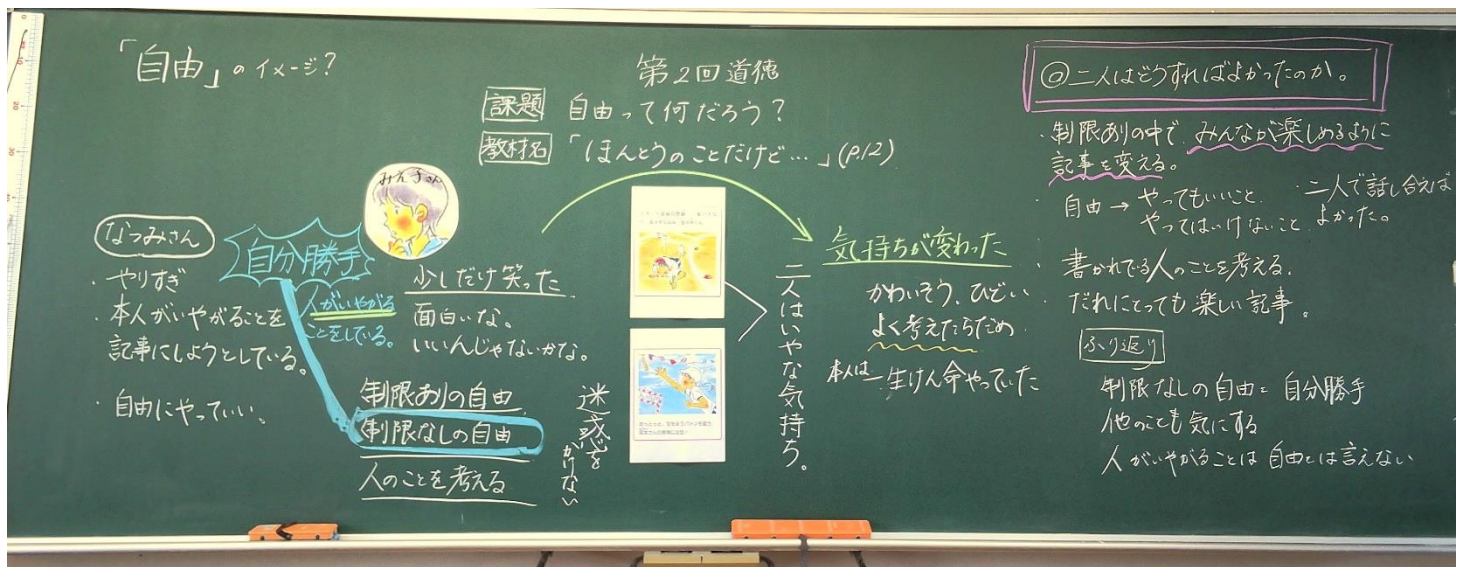 「自由」のイメージ?
第2回道徳
課題 自由って何だろう?
教材名 「ほんとうのことだけど…」(P.12)
なつみさん
・やりすぎ
・本人がいやがることを
記事にしようとしている。
・自由にやっていい。
自分勝手
人がいやがる
ことをしている。
みえ子さん
少しだけ笑った
面白いな。
いいんじゃないかな。
制限ありの自由
制限なしの自由
人のことを考える
迷惑を
かけない
二人はいやな気持ち。
気持ちが変わった
かわいそう、ひどい
よく考えたらだめ
本人は一生けん命やっていた
@二人はどうすればよかったのか。
・制限ありの中で、みんなが楽しめるように
記事を変える。
・自由→やってもいいこと
やってはいけないこと
・二人で話し合えば
よかった。
・書かれてる人のことを考える。
・だれにとっても楽しい記事。
ふり返り
制限なしの自由=自分勝手
他のことも気にする
人がいやがることは自由とは言えない